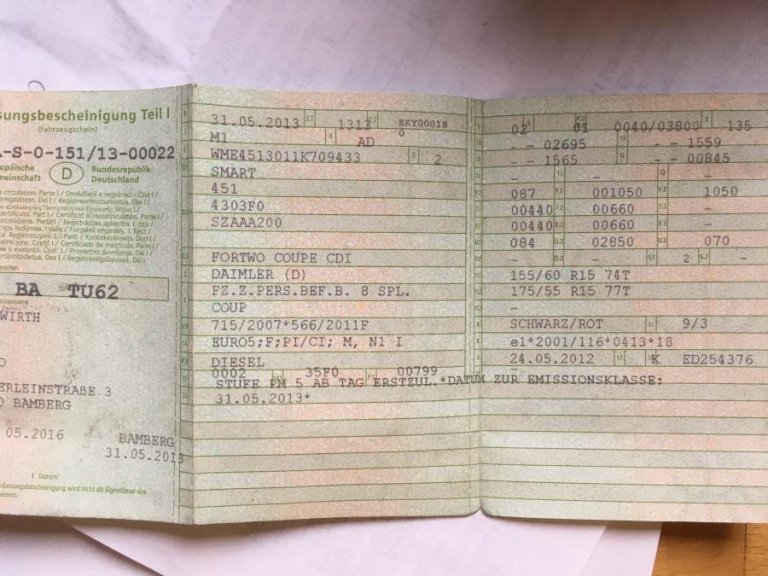 sungsbescheinigung Teil I
(Fahrzeugschein)
-S-0-151/13-00022
opäische
meinschaft
D
Bundesrepublik
Deutschland
BA TU62
WIRTH
O
ERLEINSTRAßE 3
BAMBERG
05.2016
BAMBERG
31.05.2013
Datum:
31.05.2013 1313 BKY00018
M1 AD 0
WME4513011K709433 3 2
SMART
451
4303F0
SZAAA200
FORTWO COUPE CDI
DAIMLER (D)
FZ.Z.PERS.BEF.B. 8 SPL.
COUP
715/2007*566/2011F
EURO5;F;PI/CI; M, N1 I
DIESEL
0002 35F0 00799
STUFE PM 5 AB TAG ERSTZUL.*DATUM ZUR EMISSIONSKLASSE:
31.05.2013*
02 01 0040/03800 135
- - 02695 - - 1559
- - 1565 - - 00845
- - -
087 001050 1050
00440 00660 -
00440 00660 -
084 02850 070
- - 2 -
155/60 R15 74T
175/55 R15 77T
-
SCHWARZ/ROT 9/3
e1*2001/116*0413*18
24.05.2012 K ED254376